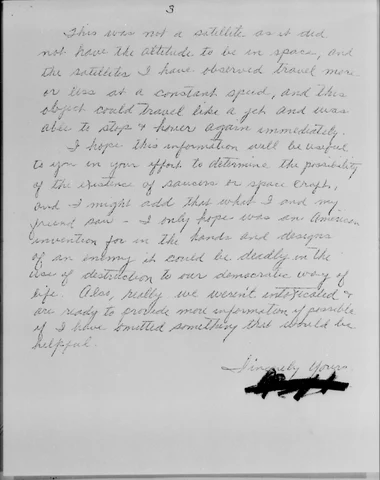 3
This was not a satellite as it did
not have the altitude to be in space, and
the satellites I have observed travel more
or less at a constant speed, and this
object could travel like a jet and was
able to stop & hover again immediately.
I hope this information will be useful
to you in your effort to determine the possibility
of the existence of saucers or space craft,
and I might add that what I and my
friend saw - I only hope was an American
invention for in the hands and designs
of an enemy it could be deadly in the
use of destruction to our democratic way of
life. Also, really we weren't intoxicated &
are ready to provide more information if possible
if I have omitted something that would be
helpful.
Sincerely Yours